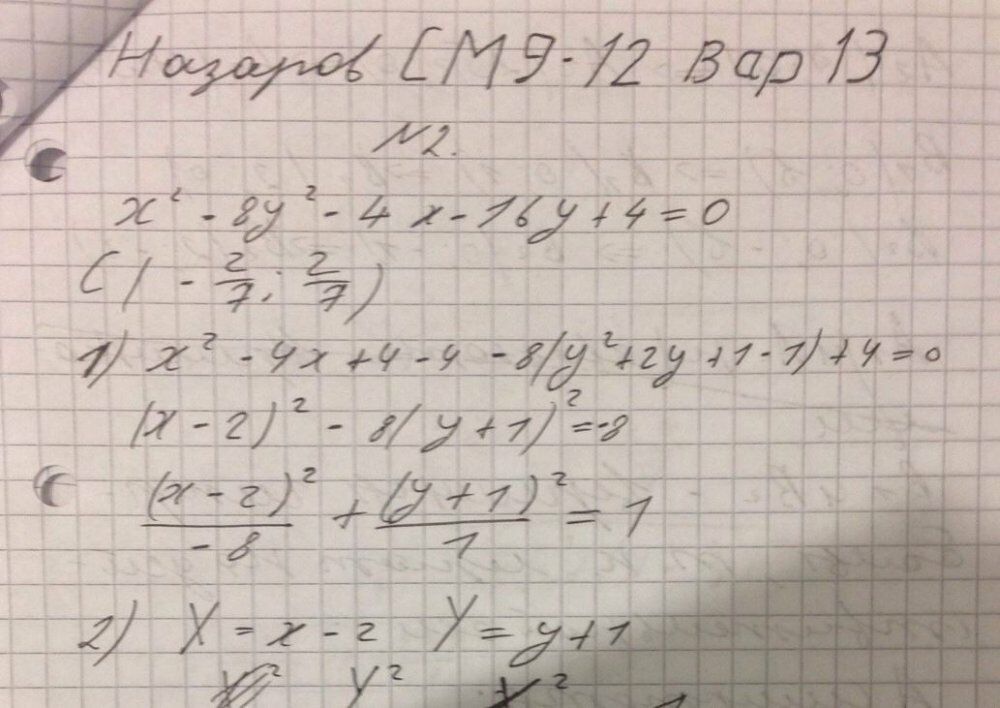 Назаров СМ9-12 Вар 13
№2.
x² - 8y² - 4x - 16y + 4 = 0
C(-2/7; 2/7)
1) x² - 4x + 4 - 4 - 8(y² + 2y + 1 - 1) + 4 = 0
(x - 2)² - 8(y + 1)² = -8
(x - 2)²/-8 + (y + 1)²/1 = 1
2) X = x - 2 Y = y + 1